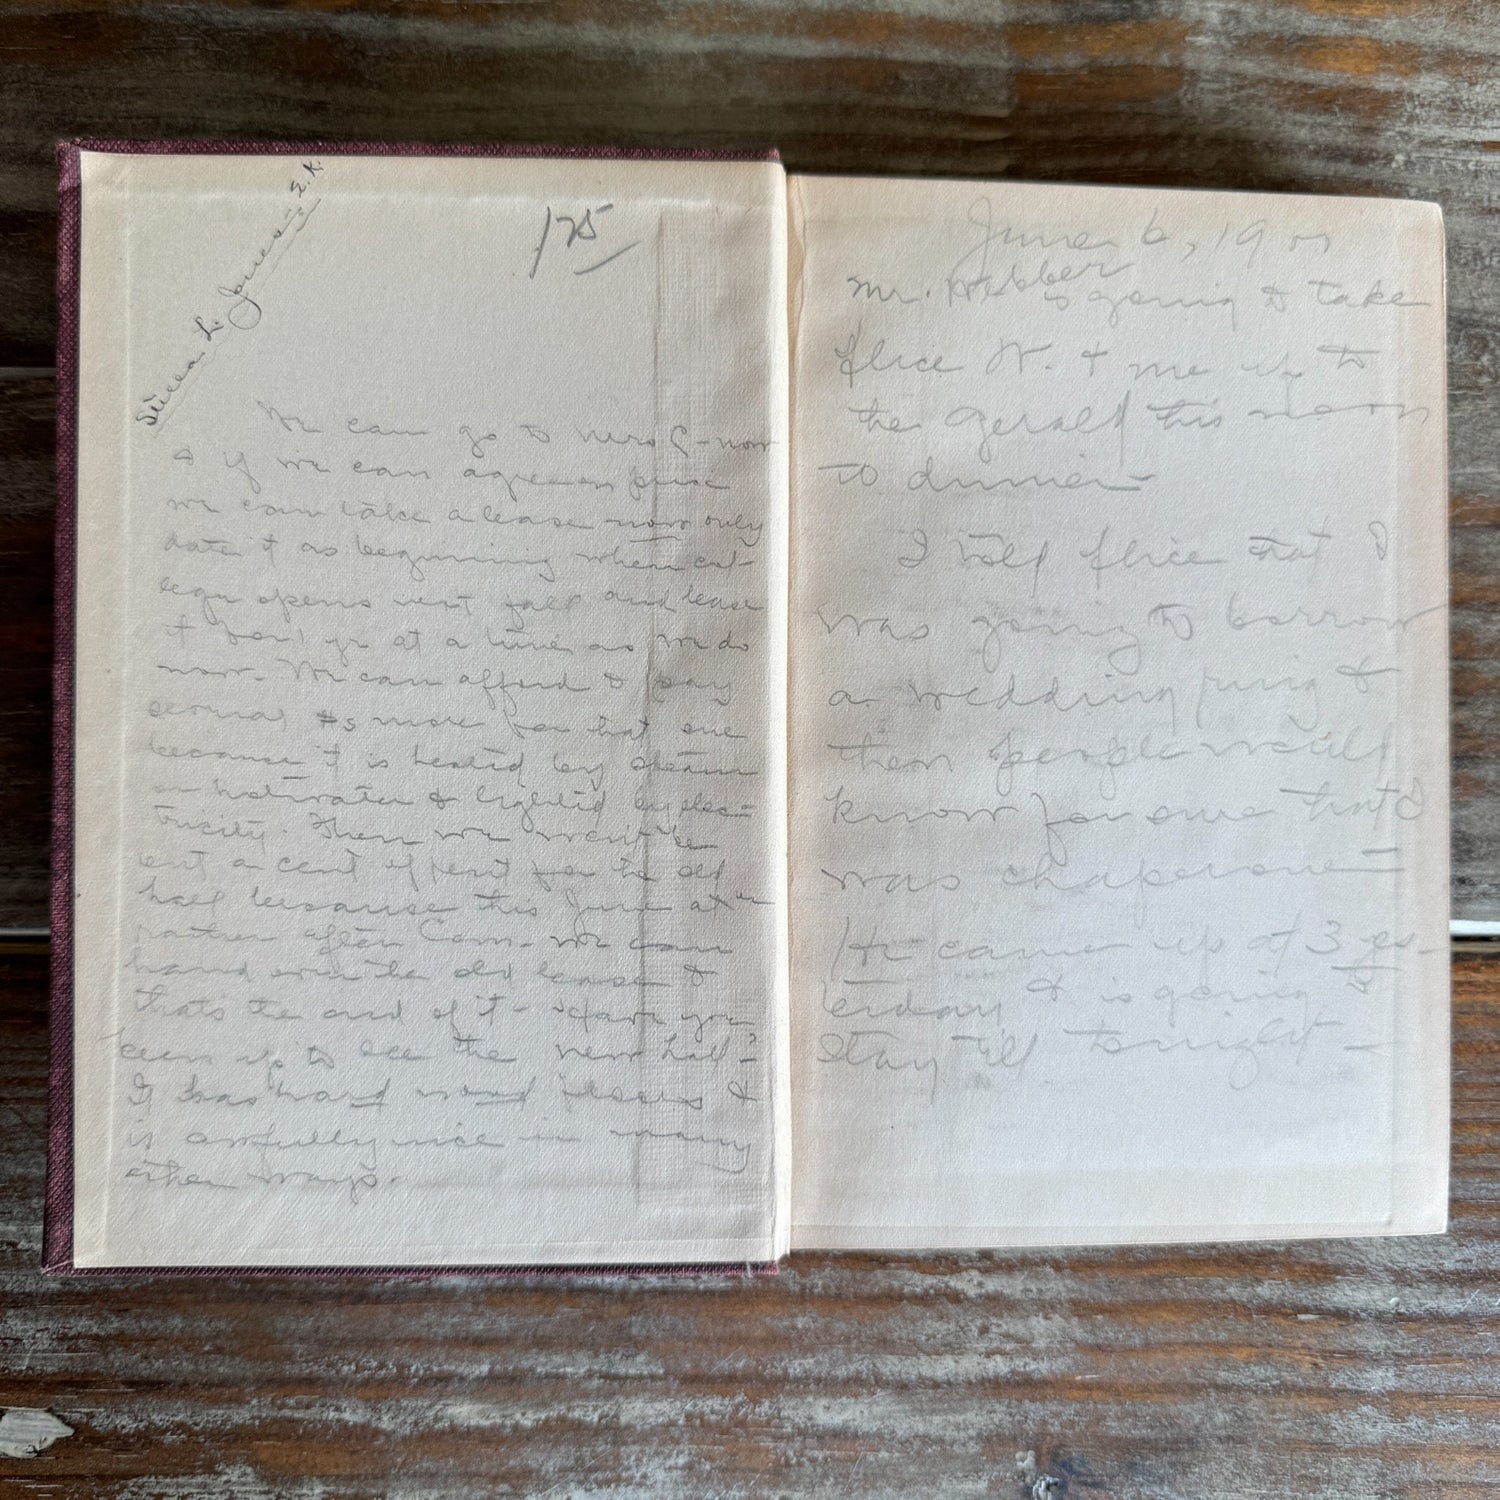 L. Jones
175
We can go to Mrs C- now
& if we can agree on price
we can take a lease now only
date it as beginning when col-
lege opens next fall and lease
it for 1 yr at a time as we do
now. We can afford to pay
several $s more for that one
because it is heated by steam
or hot water & lighted by elec-
tricity. Then we won't be
out a cent of rent for the old
hall because this June at
rather after Com- we can
hand over the old lease &
thats the end of it - "Have you
been up to see the new hall-?
It has hard wood floors &
is awfully nice in many
other ways.
June 6, 19
Mr. Webber
is going to take
Alice W. & me up to
the Gerald this noon
to dinner-
I told Alice that I
was going to borrow
a wedding ring &
then people would
know for one that I
was chaperone-
He came up at 3 yes-
terday & is going to
stay till tonight-